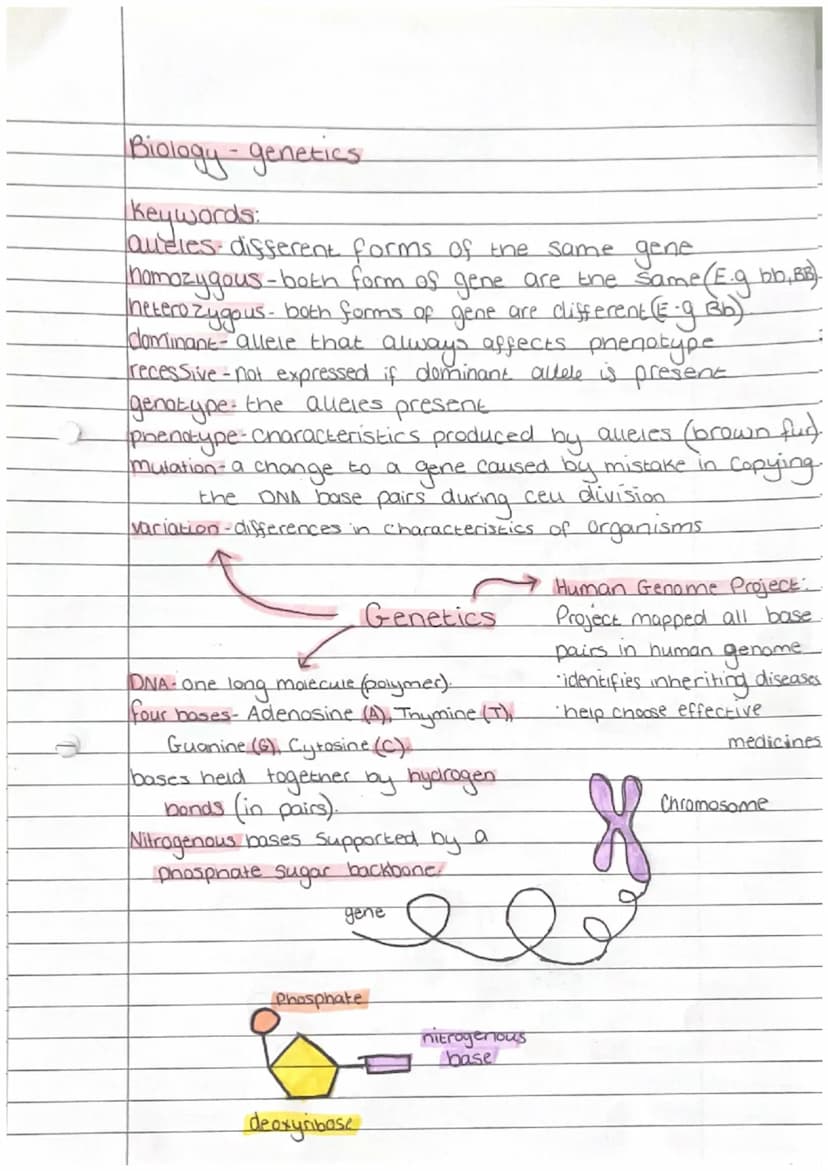 Biology - genetics
Keywords:
alleles - different forms of the same gene
homozygous - both form of gene are the same (E.g bb, BB).
heterozygous - both forms of gene are different (E.g Bb)
dominant - allele that always affects phenotype
recessive - not expressed if dominant allele is present
genotype - the alleles present
phenotype - characteristics produced by alleles (brown fur).
mutation - a change to a gene caused by mistake in copying
the DNA base pairs during cell division
variation - differences in characteristics of organisms
Genetics
Human Genome Project:
Project mapped all base
pairs in human genome
·identifies inheriting diseases
·help choose effective
medicines
DNA - one long molecule (polymer).
four bases - Adenosine (A), Thymine (T),
Guanine (G), Cytosine (C).
bases held together by hydrogen
bonds (in pairs).
Nitrogenous bases supported by a
phosphate sugar backbone.
Chromosome
gene
Phosphate
nitrogenous
base
deoxyribose